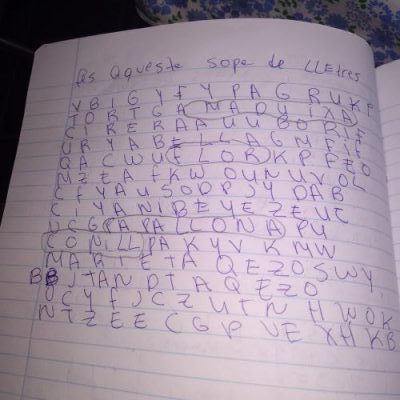 As Aqueste sope de LLEtres
V B I G Y F Y P A G R U K P
T O R T G A M A D U I X A
C I R E R A A U U B O R I F
U R Y A B E L L A G M F I C
Q A C W U F L O R K P F E O
M Z E A F K W O U N U V O L
C F Y A U S O D P J Y O A B
C I Y A N I B E Y E Z E U C
U C G P A P A L L O N A P U
C O N I L L P A K Y V K M W
M A R I E T A Q E Z O S W Y
B B J T A N D T A Q E Z O
O C Y F J C Z U T N H W O K
N T Z E E C G P V E X H K B